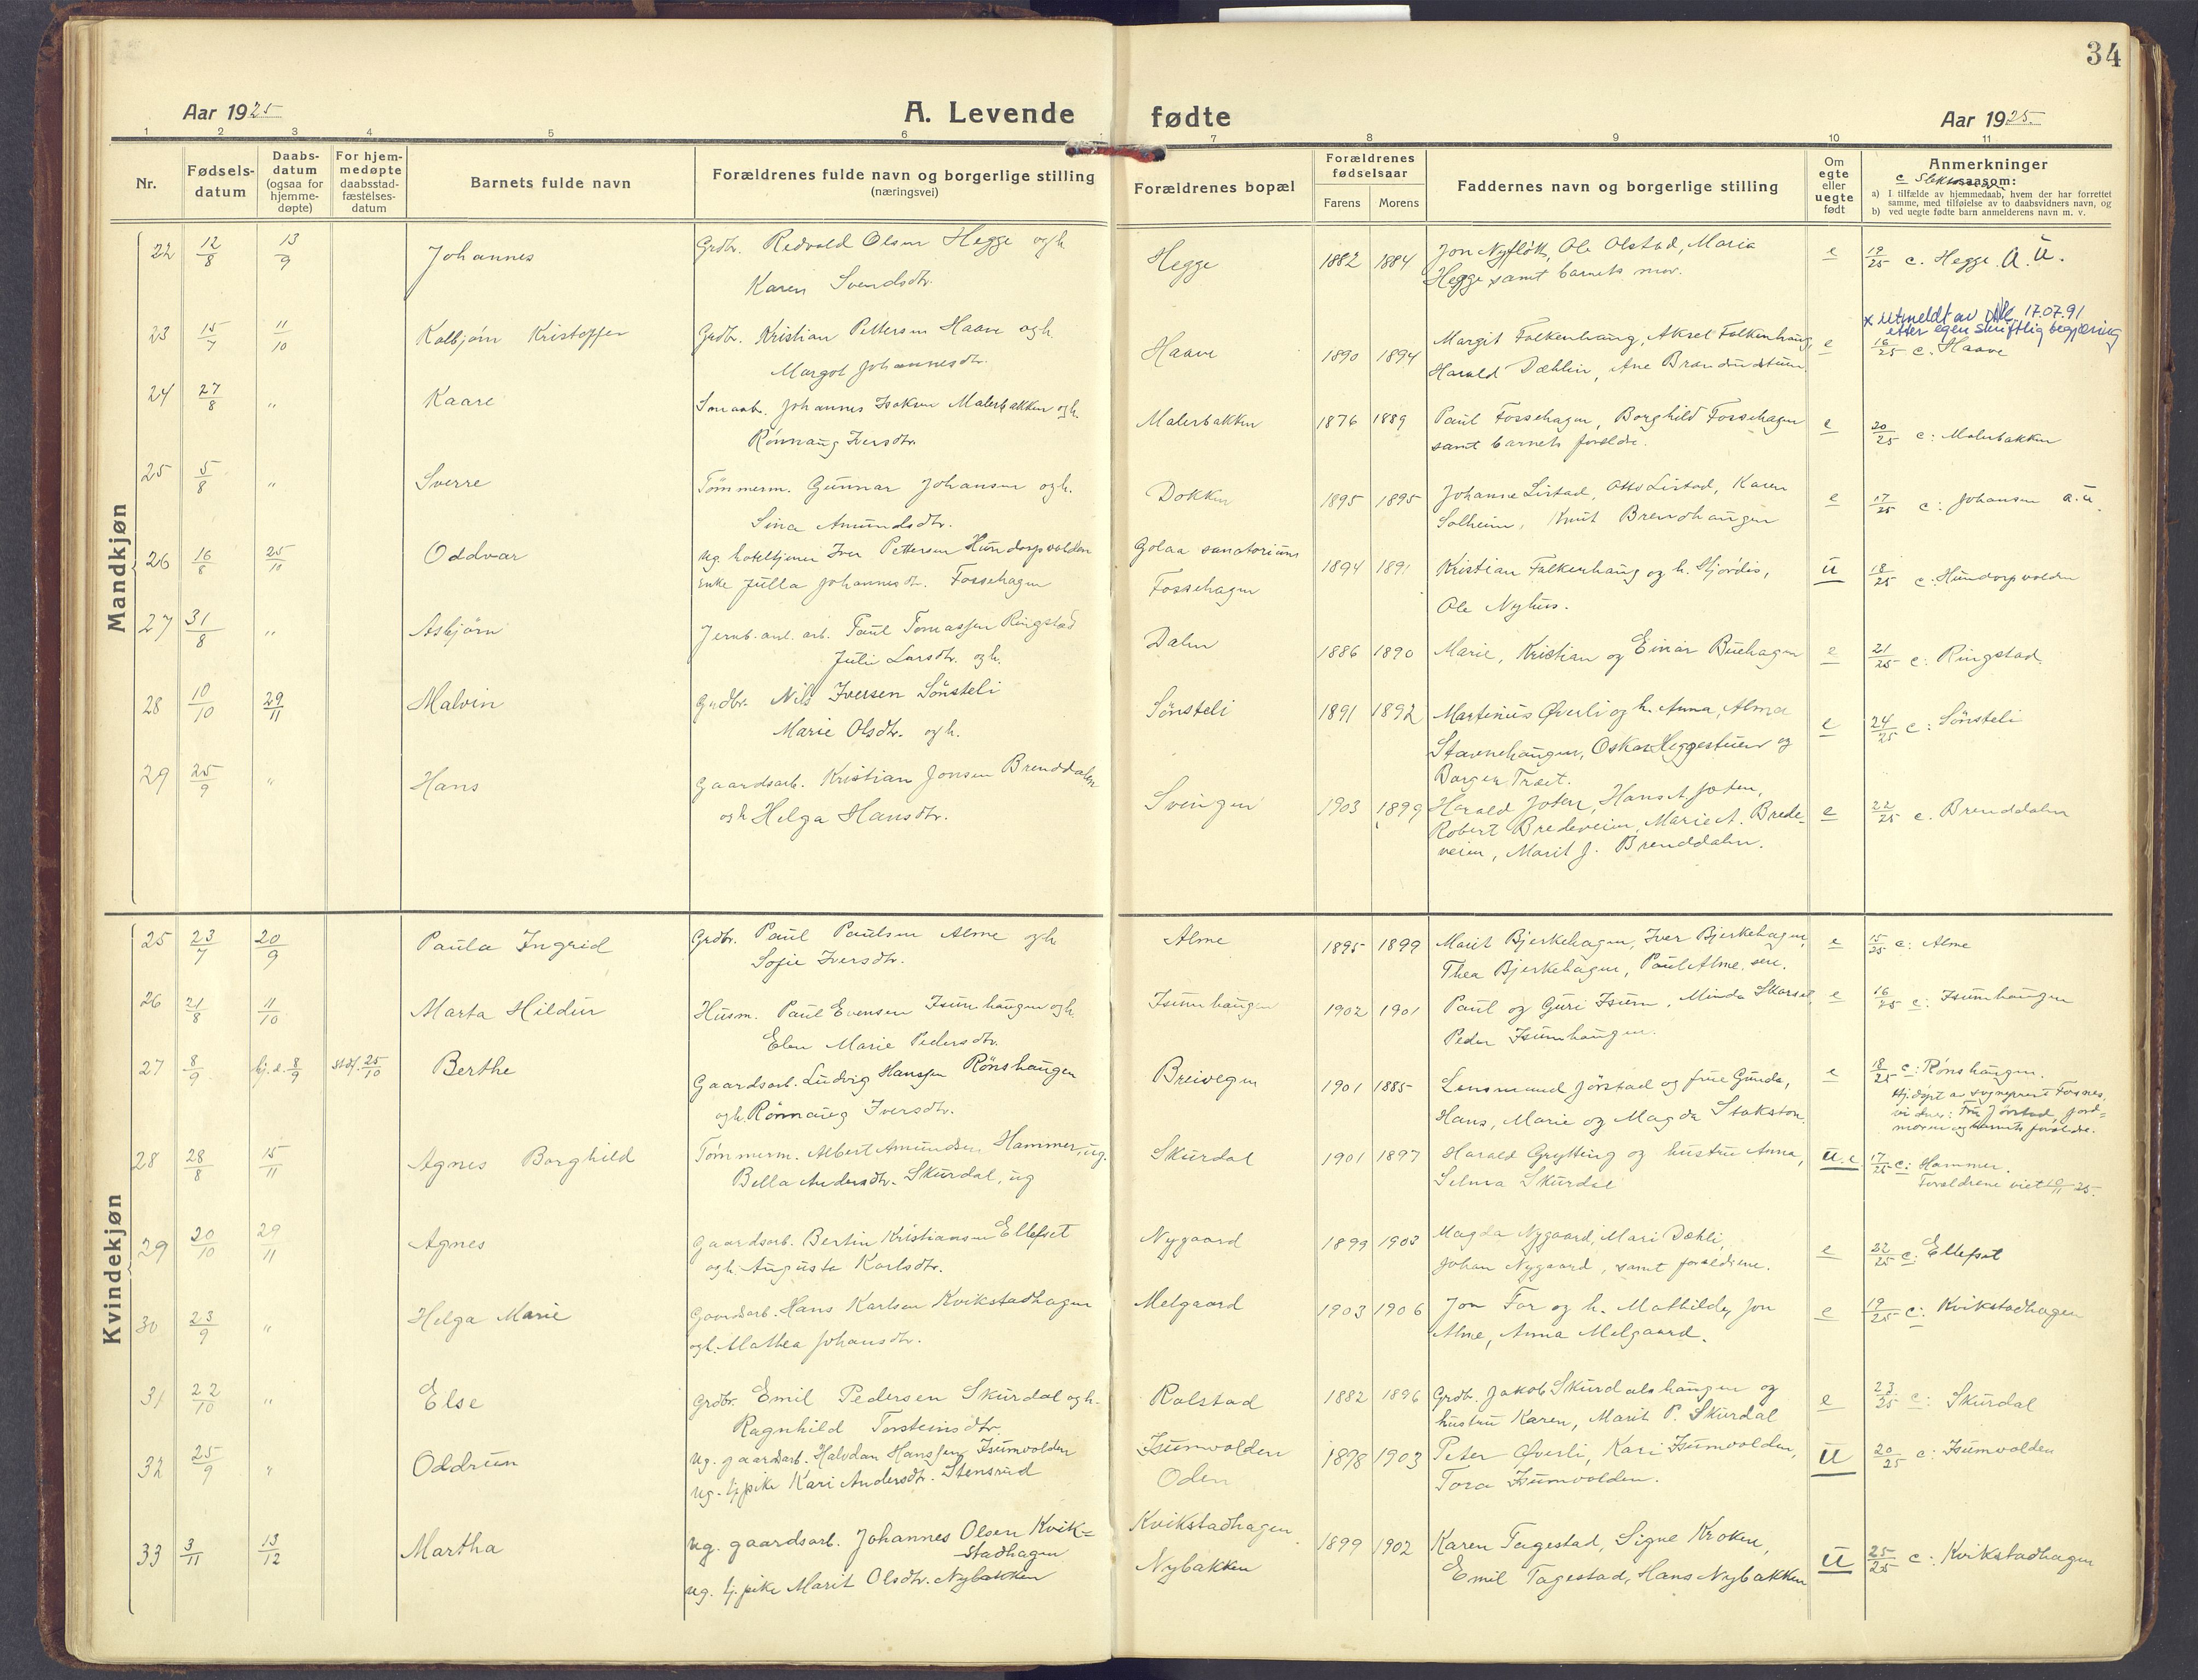 34
Aar 1925
A. Levende fødte
Aar 1925.
1 2 3 4 5 6 7 8 9 10 11
Nr.
Fødsels-
datum
Daabs-
datum
(ogsaa for
hjemme-
døpte)
For hjem-
medøpte
daabsstad-
fæstelses-
datum
Barnets fulde navn
Forældrenes fulde navn og borgerlige stilling
(næringsvei)
Forældrenes bopæl
Forældrenes
fødselsaar
Farens Morens
Faddernes navn og borgerlige stilling
Om
egte
eller
uegte
født
Anmerkninger
saasom:
a) I tilfælde av hjemmedaab, hvem der har forrettet
samme, med tilføielse av to daabsvidners navn, og
b) ved uegte fødte barn anmelderens navn m. v.
Mandkjøn
22 12/8 13/9 Johannes Grdbr. Redvald Olsen Hegge og h. Hegge 1882 1884 Jon Nyfløtt, Ole Olstad, Maria e 19/25 c. Hegge. A.U.
Karen Svendsdtr. Hegge samt barnets mor.
x utmeldt av DNK 17.07.91
etter egen skriftlig begjæring
23 15/7 11/10 Kolbjørn Kristoffer Grdbr. Kristian Pettersen Haave og h. Haave 1890 1894 Margit Falkenhaug, Aksel Falkenhaug, e 16/25 c. Haave
Margot Johannesdtr. Harald Dæhlin, Ane Brandstuen.
24 27/8 " Kaare Smaabr. Johannes Isaksen Malerbakken og h. Malerbakken 1876 1889 Paul Fossehagen, Borghild Fossehagen e 20/25 c: Malerbakken
Rønnaug Iversdtr. samt barnets foreldre.
25 5/8 " Sverre Tømmerm. Gunnar Johansen og h. Dokken 1895 1895 Johanne Listad, Otto Listad, Karen e 17/25 c: Johansen a.u.
Sina Amundsdtr. Solheim, Knut Brendhaugen
26 16/8 25/10 Oddvar ug. hoteltjener Iver Pettersen Hundorpvolden Golaa sanatorium 1894 1891 Kristian Falkenhaug og h. Hjørdis, u 18/25 c: Hundorpvolden
enke Julla Johannesdt. Fossehagen Fossehagen Ole Nyhus.
27 31/8 " Asbjørn Jernb.anl.arb. Paul Tomassen Ringstad Dalen 1886 1890 Marie, Kristian og Einar Buehagen e 21/25 c: Ringstad.
Juli Larsdtr. og h.
28 10/10 29/11 Malvin Grdbr. Nils Iversen Sønsteli Sønsteli 1891 1892 Martinus Øverli og h. Anna, Alma e 24/25 c: Sønsteli
Marie Olsdtr. og h. Stavnehaugen, Oskar Heggestuen og
Borger Træet.
29 25/9 " Hans Gaardsarb. Kristian Jonsen Brenddalen Svingen 1903 1899 Harald Joten, Hanset Joten, e 22/25 c. Brenddalen
og h. Helga Hansdtr. Robert Bredeveien, Marie A. Brede-
veien, Marit J. Brenddalen.
Kvindekjøn
25 23/7 20/9 Paula Ingrid Grdbr. Paul Paulsen Alme og h. Alme 1895 1899 Marit Bjerkehagen, Iver Bjerkehagen, e 15/25 c: Alme
Sofie Iversdtr. Thea Bjerkehagen, Paul Alme sen.
26 21/8 11/10 Marta Hildur Husm. Paul Evensen Isumhaugen og h. Isumhaugen 1902 1901 Paul og Guri Isum, Minda Skarset, e 16/25 c: Isumhaugen
Elen Marie Pedersdtr. Peder Isumhaugen.
27 8/9 hj.d. 8/9 stdf. 25/10 Berthe Gaardsarb. Ludvig Hanssen Rønshaugen Breivegen 1901 1885 Lensmand Jørstad og frue Gunda, e 18/25 c: Rønshaugen.
og h. Rønnaug Iversdtr. Hans, Marie og Magda Stokston Hj.døpt av sogneprest Forsnes,
vidner: Fru Jørstad, jord-
moren og barnets foreldre.
28 28/8 15/11 Agnes Borghild Tømmerm. Albert Amundsen Hammer, ug. Skurdal 1901 1897 Harald Grytting og hustru Anna, u.e 17/25 c: Hammer.
Bella Andersdtr. Skurdal, ug Selma Skurdal Foreldrene viet 25.
29 20/10 29/11 Agnes Gaardsarb. Bertin Kristiansen Ellefset Nygaard 1899 1903 Magda Nygaard, Mari Dæhli, e 22/25 c: Ellefset
og h. Augusta Karlsdtr. Johan Nygaard, samt foreldrene.
30 23/9 " Helga Marie Gaardsarb. Hans Karlsen Kvikstadhagen Melgaard 1903 1906 Jon For og h. Mathilde, Jon e 19/25 c: Kvikstadhagen
og h. Mathea Johansdtr. Alme, Anna Melgaard.
31 22/10 " Else Grdbr. Emil Pedersen Skurdal og h. Rolstad 1882 1896 Grdb. Jakob Skurdalshaugen og e 23/25 c: Skurdal
Ragnhild Torsteinsdtr. hustru Karen, Marit P. Skurdal
32 25/9 " Oddrun ug. gaardsarb. Halvdan Hanssen Isumvolden Isumvolden 1898 1903 Peter Øverli, Kari Isumvolden, u 20/25 c: Isumvolden
ug. tj.pike Kari Andersdtr. Stensrud Oden Tora Isumvolden.
33 3/11 13/12 Martha ug. gaardsarb. Johannes Olsen Kvik- Kvikstadhagen 1899 1902 Karen Tagestad, Signe Kroken, u 25/25 c. Kvikstadhagen
stadhagen
ug. tj.pike Marit Olsdtr. Nybakken Nybakken Emil Tagestad, Hans Nybakken